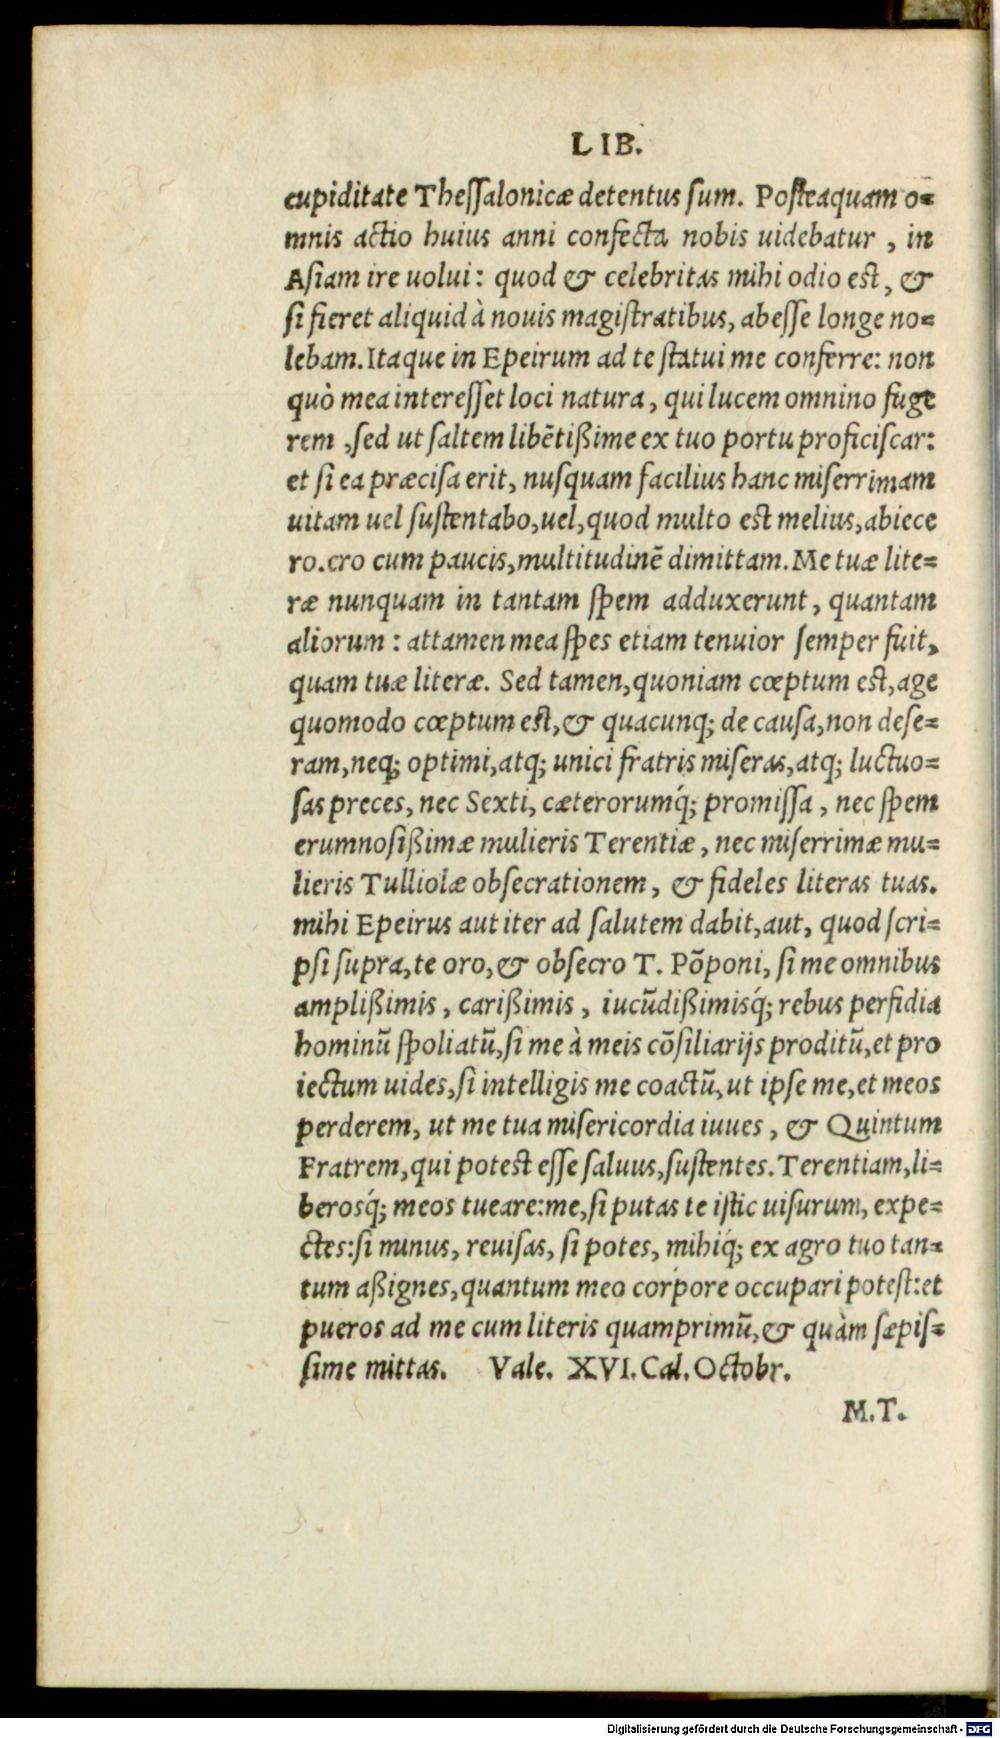 LIB.
cupiditate Thessalonicæ detentus sum. Posteaquam o=
mnis actio huius anni confecta nobis uidebatur , in
Asiam ire uolui: quod & celebritas mihi odio est, &
si fieret aliquid à nouis magistratibus, abesse longe no=
lebam. Itaque in Epeirum ad te statui me conferre: non
quò mea interesset loci natura, qui lucem omnino fuge
rem ,sed ut saltem libētißime ex tuo portu proficiscar:
et si ea præcisa erit, nusquam facilius hanc miserrimam
uitam uel sustentabo,uel,quod multo est melius,abiece
ro.ero cum paucis,multitudinē dimittam. Me tuæ lite=
ræ nunquam in tantam spem adduxerunt, quantam
aliorum : attamen mea spes etiam tenuior semper fuit,
quam tuæ literæ. Sed tamen,quoniam cœptum est,age
quomodo cœptum est,& quacunq; de causa,non dese=
ram,neq; optimi,atq; unici fratris miseras,atq; luctuo=
sas preces, nec Sexti, cæterorumq́; promissa , nec spem
erumnosißimæ mulieris Terentiæ, nec miserrimæ mu=
lieris Tulliolæ obsecrationem, & fideles literas tuas.
mihi Epeirus aut iter ad salutem dabit,aut, quod scri=
psi supra,te oro,& obsecro T. Pōponi, si me omnibus
amplißimis, carißimis , iucūdißimisq́; rebus perfidia
hominū spoliatū,si me à meis cōsiliarijs proditū,et pro
iectum uides,si intelligis me coactū,ut ipse me,et meos
perderem, ut me tua misericordia iuues, & Quintum
Fratrem,qui potest esse saluus,sustentes. Terentiam,li=
berosq́; meos tueare:me,si putas te istic uisurum, expe=
ctes:si minus, reuisas, si potes, mihiq́; ex agro tuo tan=
tum aßignes,quantum meo corpore occupari potest:et
pueros ad me cum literis quamprimū,& quàm sæpis=
sime mittas. Vale. XVI. Cal. Octobr.
M.T.
Digitalisierung gefördert durch die Deutsche Forschungsgemeinschaft - DFG